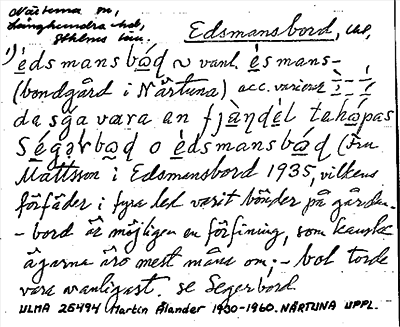 Närtuna sn,
Långhundra hd,
Sthlms län.
Edsmansbord,
1) èdsmansbo̱d ~ vanl. èsmans-
(bondgård i Närtuna) acc. varierar
de sga vara en fjä̀ndél tehо̱pas
Sègerbo̱d o èdsmansbo̱d (Fru
Mattsson i Edsmansbord 1935, vilkens
förfäder i fyra led varit bönder på gården.
-bord är möjligen en förfining, som kanske
ägarna äro mest måna om; - bol torde
vara vanligast. se Segerbord
ULMA 25494 Martin Ålander 1930-1960. NÄRTUNA UPPL.